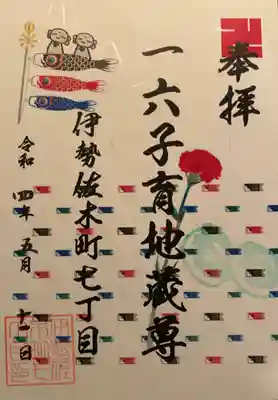 奉拝
一六子育地蔵尊
伊勢佐木町七丁目
令和四年五月十一日